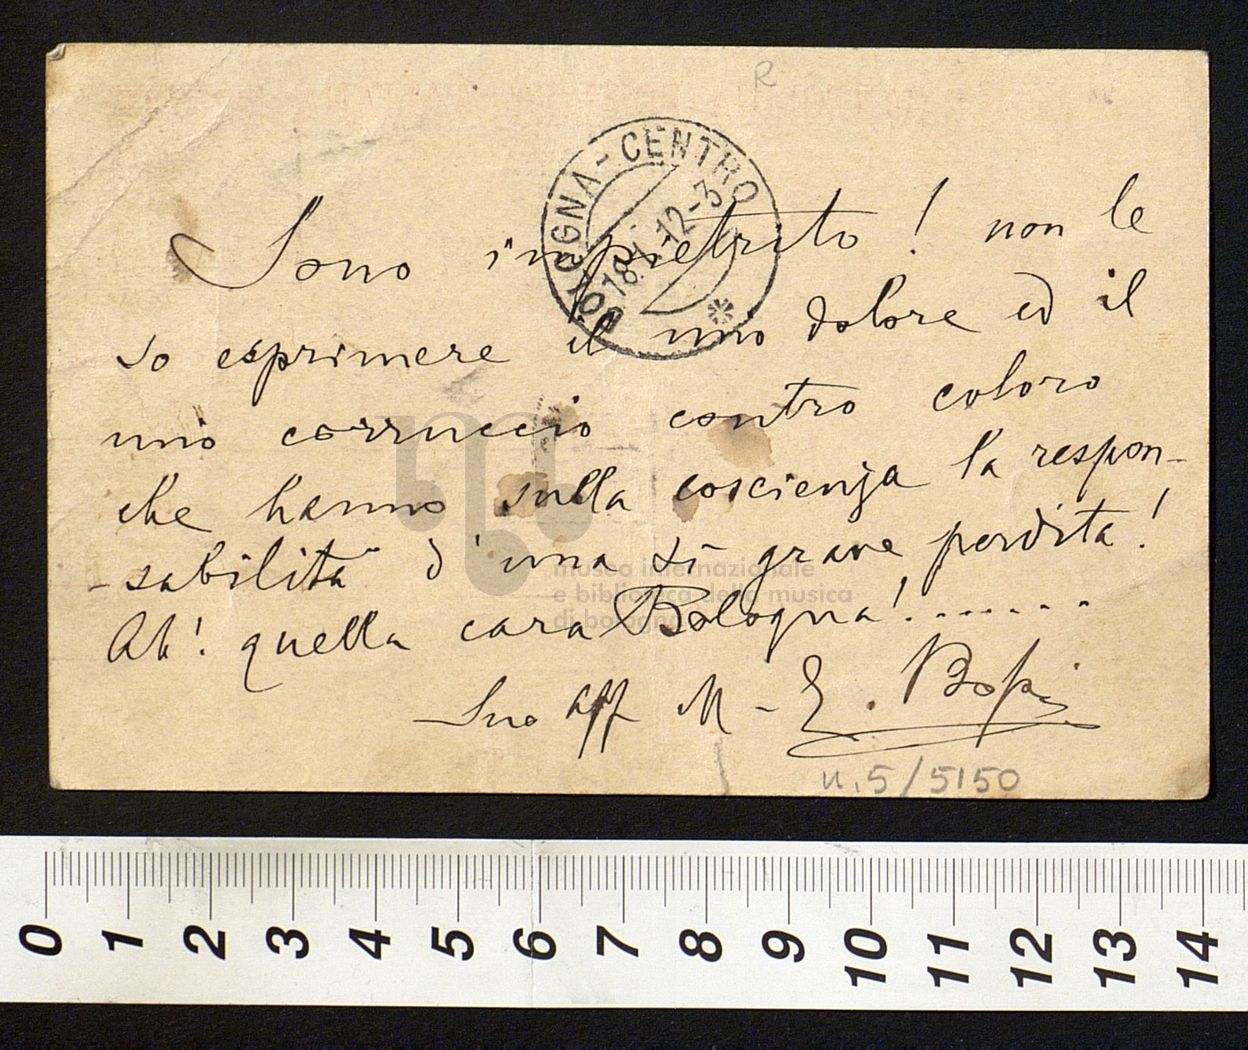 R
BOLOGNA-CENTRO
18.1.12-3
Sono impietrito! non le
so esprimere il mio dolore ed il
mio corruccio contro coloro
che hanno sulla coscienza la respon-
-sabilità d'una sì grave perdita!
Ah! quella cara Bologna!.......
Suo aff M- E. Bossi
n. 5/5150
museo internazionale
e biblioteca della musica
di bologna
0 1 2 3 4 5 6 7 8 9 10 11 12 13 14